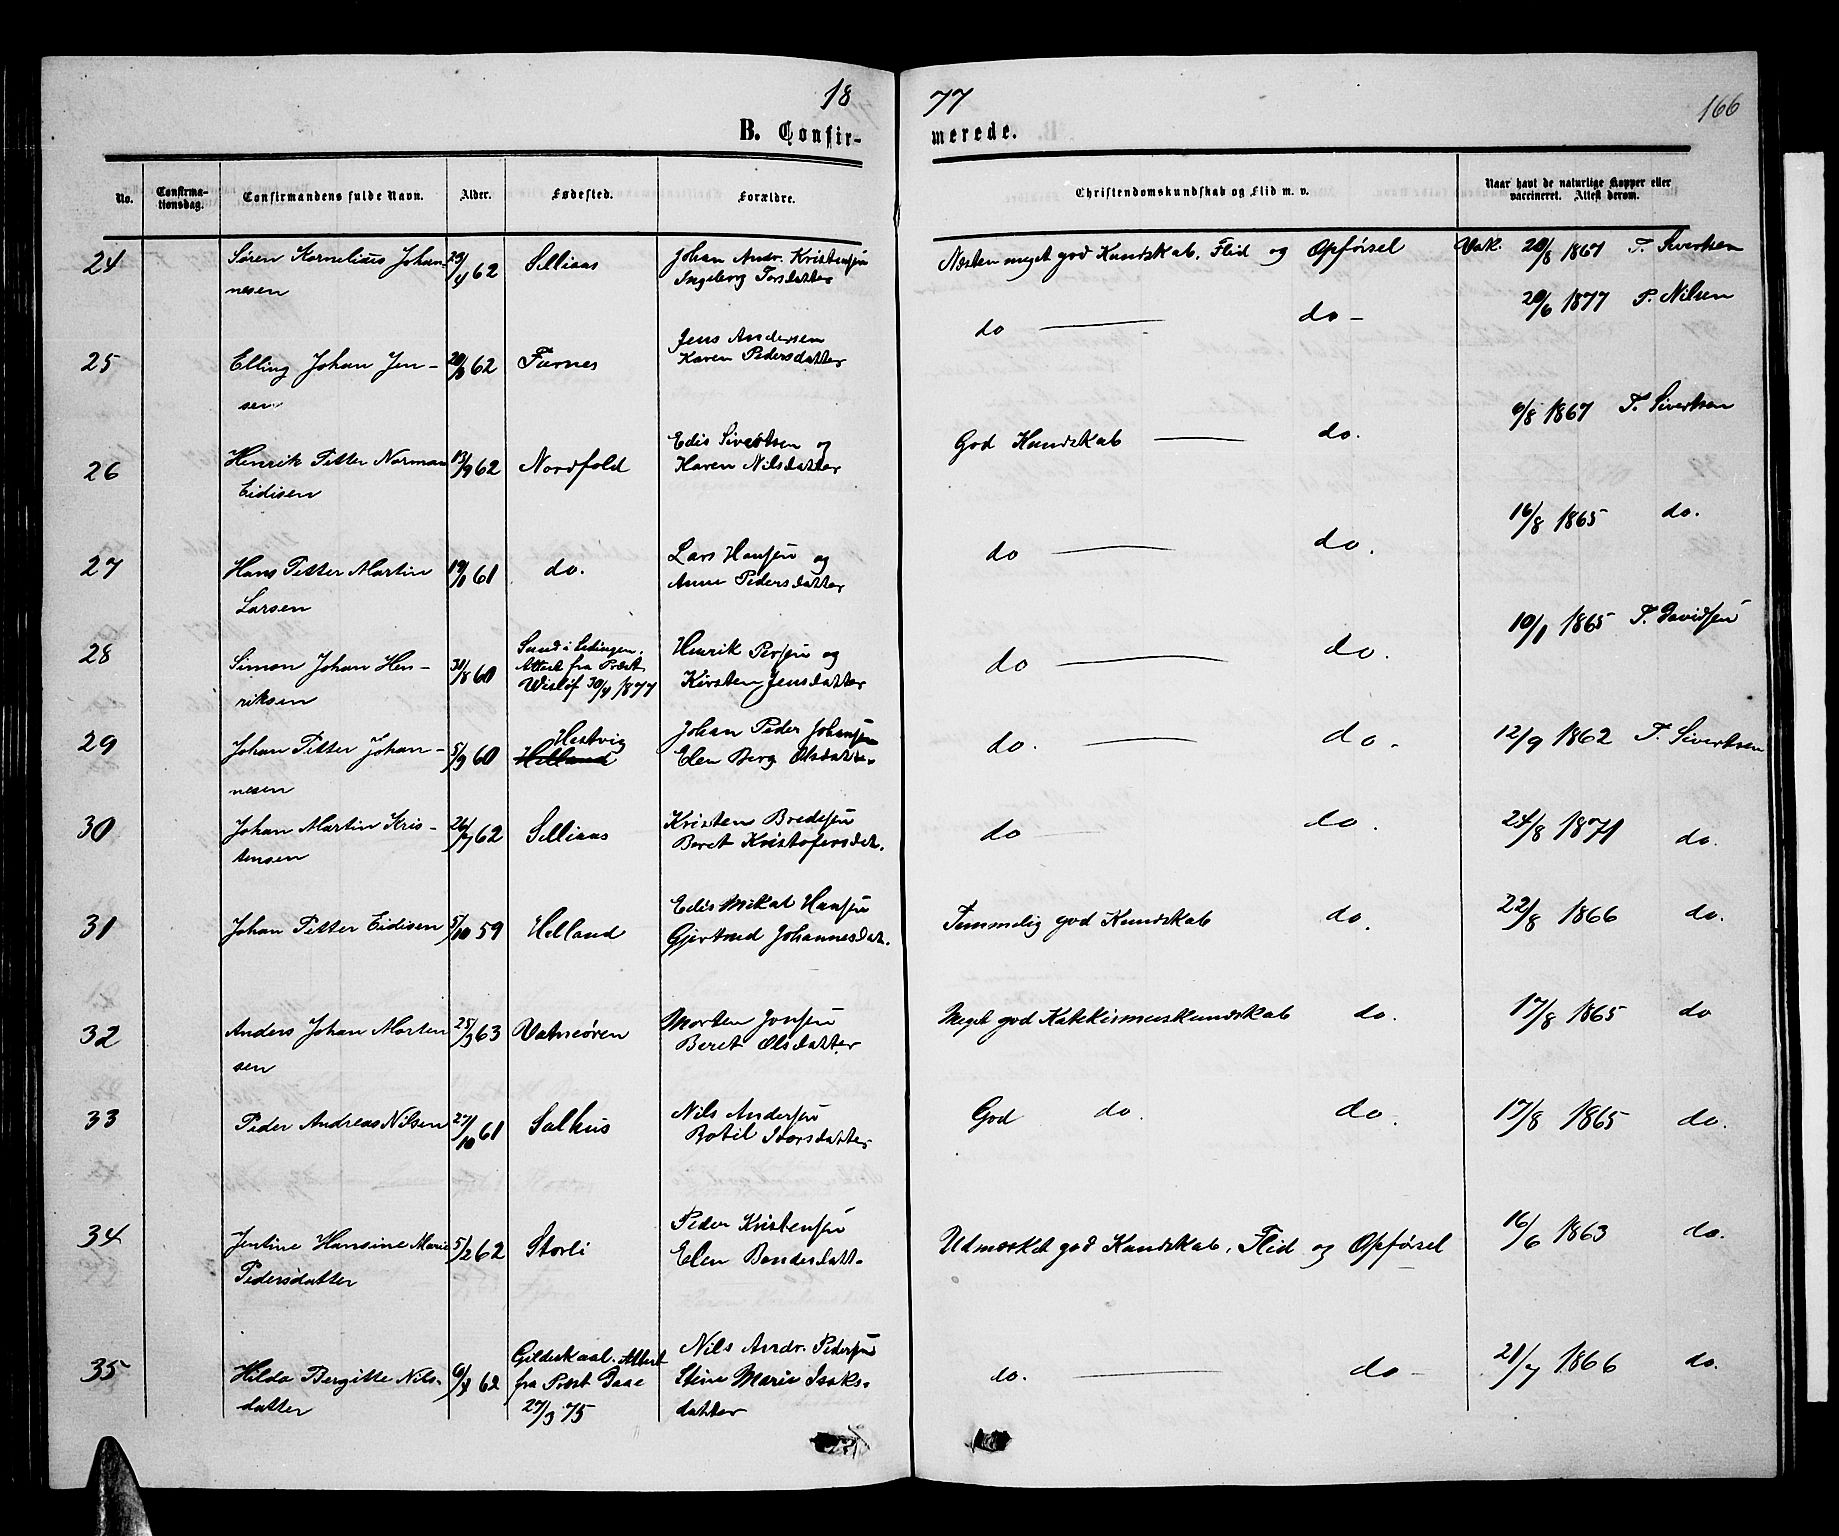 18 77
166
B. Confirmerede.
No. Confirmationsdag. Confirmandens fulde Navn. Alder. Fødested. Forældre. Christendomskundskab og Flid m. v. Naar havt de naturlige Kopper eller vaccineret. Attest derom.
24 Søren Kornelius Johan- 23/4 62 Selliaas Johan Andr. Kristensen Næsten meget god Kundskab, Flid og Opførsel Vak. 20/8 1867 T. Sivertsen
nesen Ingeborg Torsdatter
25 Elling Johan Jen- 62 Færnes Jens Andersen do do 20/6 1877 P. Nilsen
sen Karen Pedersdatter
26 Henrik Petter Norman 13/9 62 Nordfold Edis Sivertsen og God Kundskab do. 6/8 1867 T. Sivertsen
Eidisen Karen Nilsdatter
27 Hans Petter Martin 19/1 61 do. Lars Hansen og do do. 16/8 1865 do.
Larsen Anne Pedersdatter
28 Simon Johan Hen- 60 Sund i Lødingen. Henrik Persen og do do. 10/1 1865 T. Davidsen
riksen Attest fra Præst Kirsten Jensdatter
Wisløf 30/4 1877
29 Johan Petter Johan- 5/9 60 Hestvig Johan Peder Johansen do. do. 12/9 1862 T. Sivertsen
nesen Helland Elen Berg Olsdatter
30 Johan Martin Kris- 62 Selliaas Kristen Bredesen do do. 24/8 1871 do.
tensen Beret Kristofersdat.
31 Johan Petter Eidisen 5/10 59 Helland Edis Mikal Hansen Temmelig god Kundskab do. 22/8 1866 do.
Gjertrud Johannesdat.
32 Anders Johan Morten 25/3 63 Vatneøren Morten Jonsen Meget god Katekismuskundskab do. 17/8 1865 do
sen Beret Olsdatter
33 Peder Andreas Nilsen 27/10 61 Salhus Nils Andersen God do. do. 17/8 1865 do.
Botil Storsdatter
34 Jentine Hansine Marie 5/2 62 Storli Peder Kristensen Udmærket god Kundskab, Flid og Opførsel 16/6 1863 do.
Pedersdatter Elen Bendesdatt.
35 Hilda Bergitte Nils- 62 Gildeskaal. Attest Nils Andr. Pedersen do. do 21/7 1866 do.
datter fra Præst Daae Stine Marie Isaks-
27/3 75 datter